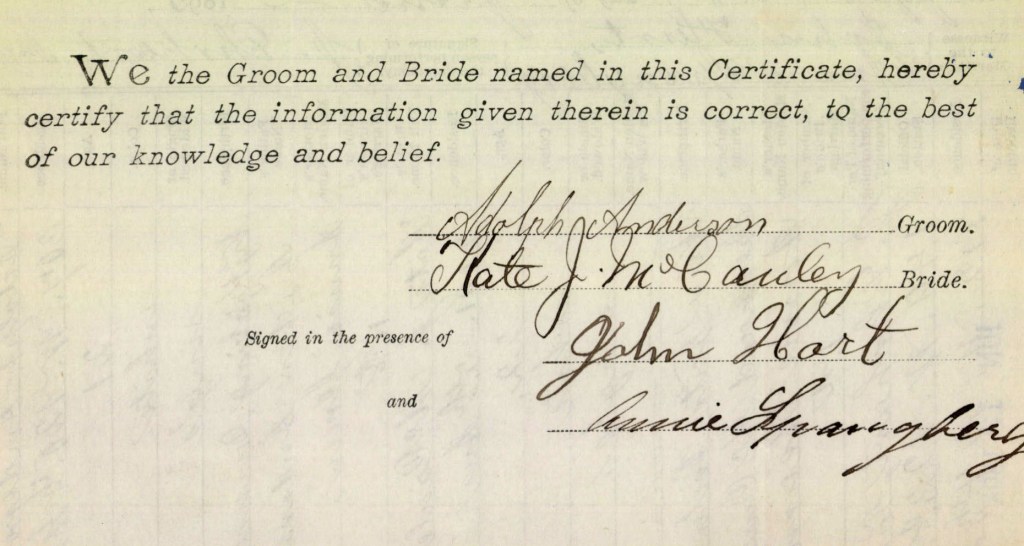 We the Groom and Bride named in this Certificate, hereby
certify that the information given therein is correct, to the best
of our knowledge and belief.
Adolph Anderson Groom.
Kate J. McCauley Bride.
Signed in the presence of John Hart
and Annie Spangberg